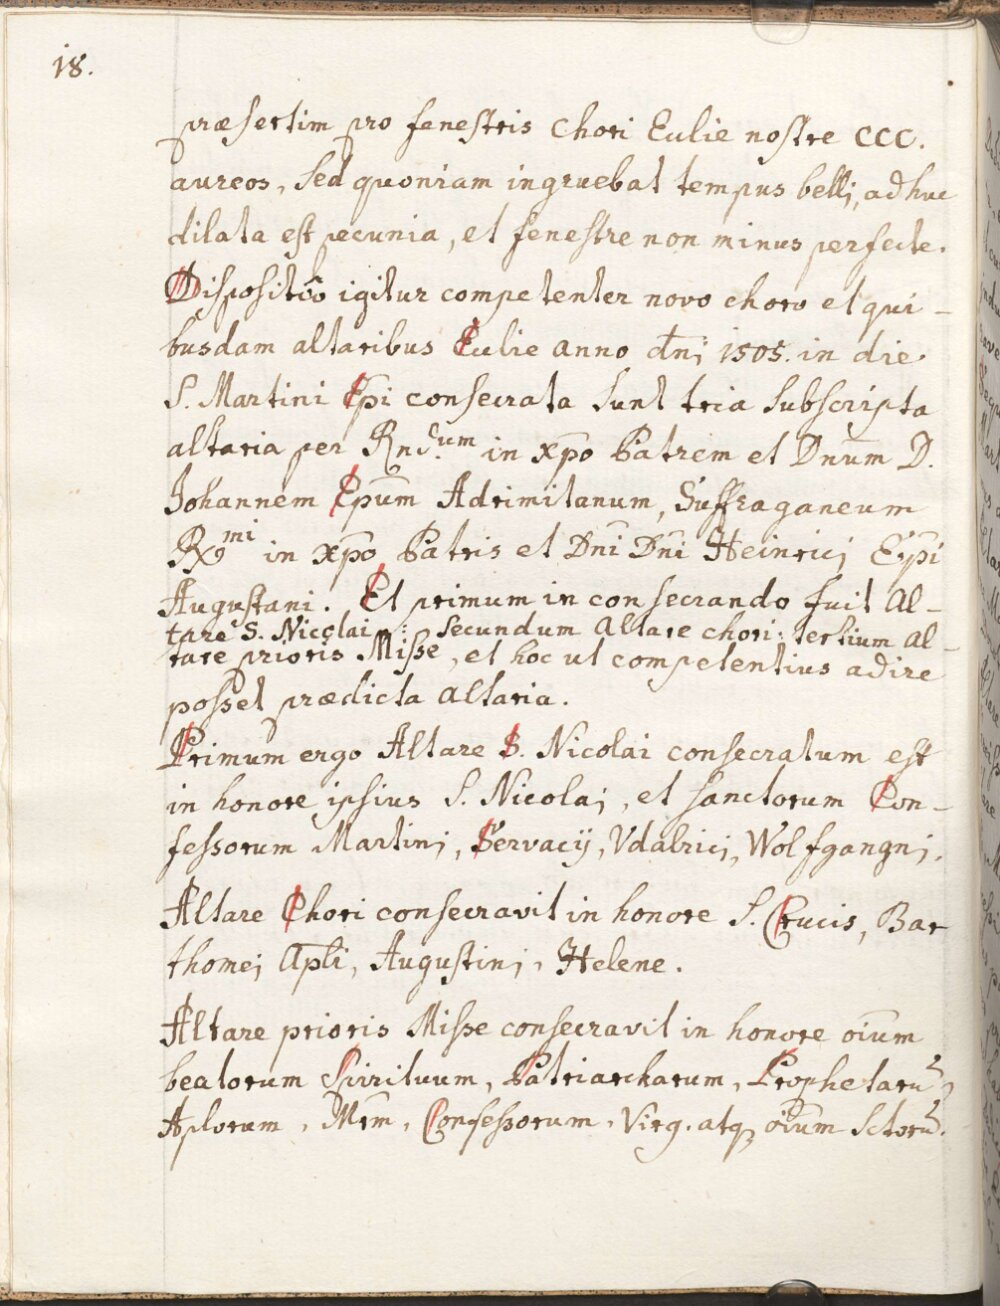 18.
præsertim pro fenestris chori Eulie nostre CCC.
aureos, sed quoniam ingruebat tempus bellj, adhuc
dilata est pecunia, et fenestre non minus perfecte.
Dispositio igitur competenter novo choro et qui-
busdam altaribus Eulie anno dnj 1505. in die
S. Martini Epi consecrata sunt tria subscripta
altaria per Rnd.um in xpo Patrem et Dnum D.
Johannem Epum Adrimitanum, Suffraganeum
R9mi in xpo Patris et Dni Dni Heinricj Epi
Augustani. Et primum in consecrando fuit Al-
tare S. Nicolai: secundum Altare chori: tertium al-
tare prioris Misse, et hoc ut competentius adire
posset prædicta altaria.
Primum ergo Altare S. Nicolai consecratum est
in honore ipsius S. Nicolaj, et sanctorum Con-
fessorum Martinj, Servacij, Vdalricj, Wolfgangnj.
Altare Chori consecravit in honore S. Crucis, Bar
thomej Apli, Augustinj, Helene.
Altare prioris Misse consecravit in honore oium
beatorum Spirituum, Patriarcharum, Prophetaru,
Aplorum, Mrm, Confessorum, Virg. atq oium Sctoru.